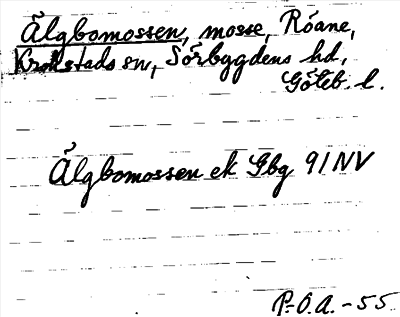 Älgbomossen, mosse, Röane,
Krokstads sn, Sörbygdens hd,
Göteb. l.
Älgbomossen ek Gbg 91 NV
P.O.A. -55